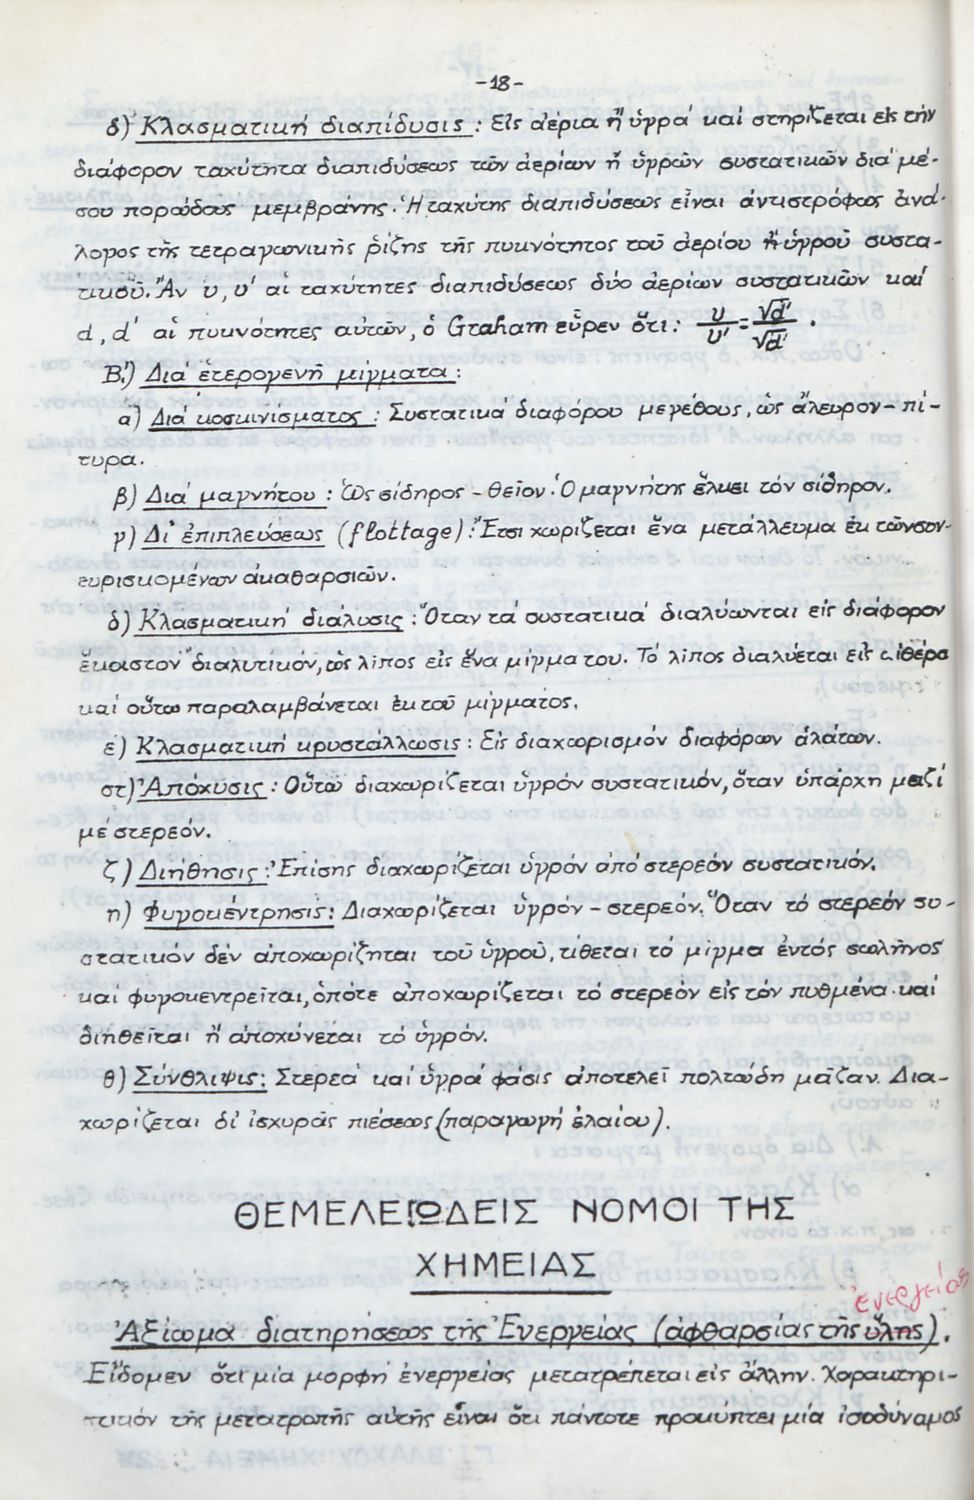 -18-
δ) Κλασματική διαπίδυσις : Εἰς ἀέρια ἤ ὑγρά καί στηρίζεται εἰς τήν
διάφορον ταχύτητα διαπιδύσεως τῶν ἀερίων ἤ ὑγρῶν συστατικῶν διά μέ-
σου πορώδους μεμβράνης. Ἡ ταχύτης διαπιδύσεως εἶναι ἀντιστρόφως ἀνά-
λογος τῆς τετραγωνικῆς ρίζης τῆς πυκνότητος τοῦ ἀερίου ἤ ὑγροῦ συστα-
τικοῦ. Ἄν υ, υ' αἱ ταχύτητες διαπιδύσεως δύο ἀερίων συστατικῶν καί
d, d' αἱ πυκνότητες αὐτῶν, ὁ Graham εὗρεν ὅτι: υ/υ' = √d'/√d .
Β.) Διά ἑτερογενῆ μίγματα :
α) Διά κοσκινίσματος : Συστατικά διαφόρου μεγέθους, ὡς ἄλευρον - πί-
τυρα.
β) Διά μαγνήτου : Ὡς σίδηρος - θεῖον. Ὁ μαγνήτης ἕλκει τόν σίδηρον.
γ) Δι' ἐπιπλεύσεως (flottage) : Ἔτσι χωρίζεται ἕνα μετάλλευμα ἐκ τῶν συν-
ευρισκομένων ἀκαθαρσιῶν.
δ) Κλασματική διάλυσις : Ὅταν τά συστατικά διαλύωνται εἰς διάφορον
ἕκαστον διαλυτικον, ὡς λίπος εἰς ἕνα μίγμα του. Τό λίπος διαλύεται εἰς αἰθέρα
καί οὕτω παραλαμβάνεται ἐκ τοῦ μίγματος.
ε) Κλασματική κρυστάλλωσις : Εἰς διαχωρισμόν διαφόρων ἁλάτων.
στ) Ἀπόχυσις : Οὕτω διαχωρίζεται ὑγρόν συστατικόν, ὅταν ὑπάρχη μαζί
μέ στερεόν.
ζ) Διήθησις : Ἐπίσης διαχωρίζεται ὑγρόν ἀπό στερεόν συστατικόν.
η) Φυγοκέντρησις : Διαχωρίζεται ὑγρόν - στερεόν. Ὅταν τό στερεόν συ-
στατικόν δέν ἀποχωρίζηται τοῦ ὑγροῦ, τίθεται τό μίγμα ἐντός σωλῆνος
καί φυγοκεντρεῖται, ὁπότε ἀποχωρίζεται τό στερεόν εἰς τόν πυθμένα καί
διηθεῖται ἤ ἀποχύνεται τό ὑγρόν.
θ) Σύνθλιψις : Στερεά καί ὑγρά φάσις ἀποτελεῖ πολτώδη μᾶζαν. Δια-
χωρίζεται δι' ἰσχυρᾶς πιέσεως (παραγωγή ἐλαίου).
ΘΕΜΕΛΕΙΩΔΕΙΣ ΝΟΜΟΙ ΤΗΣ
ΧΗΜΕΙΑΣ
ἐνεργείας
Ἀξίωμα διατηρήσεως τῆς Ἐνεργείας (ἀφθαρσίας τῆς ὕλης).
Εἴδομεν ὅτι μία μορφή ἐνεργείας μετατρέπεται εἰς ἄλλην. Χαρακτηρι-
στικόν τῆς μετατροπῆς αὐτῆς εἶναι ὅτι πάντοτε προκύπτει μία ἰσοδύναμος